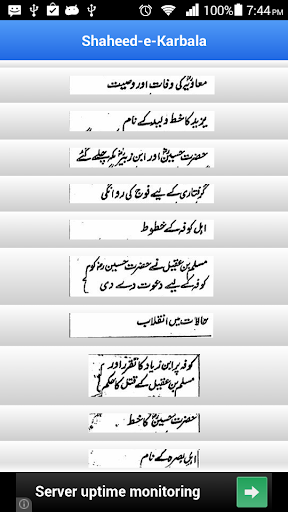 100%
7:44
Shaheed-e-Karbala
معاویہؓ کی وفات اور وصیت
یزید کا خط ولید کے نام
حضرت حسینؓ اور ابن زبیرؓ مکہ چلے گئے
گرفتاری کے لیے فوج کی روانگی
اہل کوفہ کے خطوط
مسلم بن عقیل نے حضرت حسینؓ کو
کوفہ کے لیے دعوت دے دی
حالات میں انقلاب
کوفہ پر ابن زیاد کا تقرر اور
مسلم بن عقیل کے قتل کا حکم
حضرت حسینؓ کا خط
اہل بصرہ کے نام
Server uptime monitoring